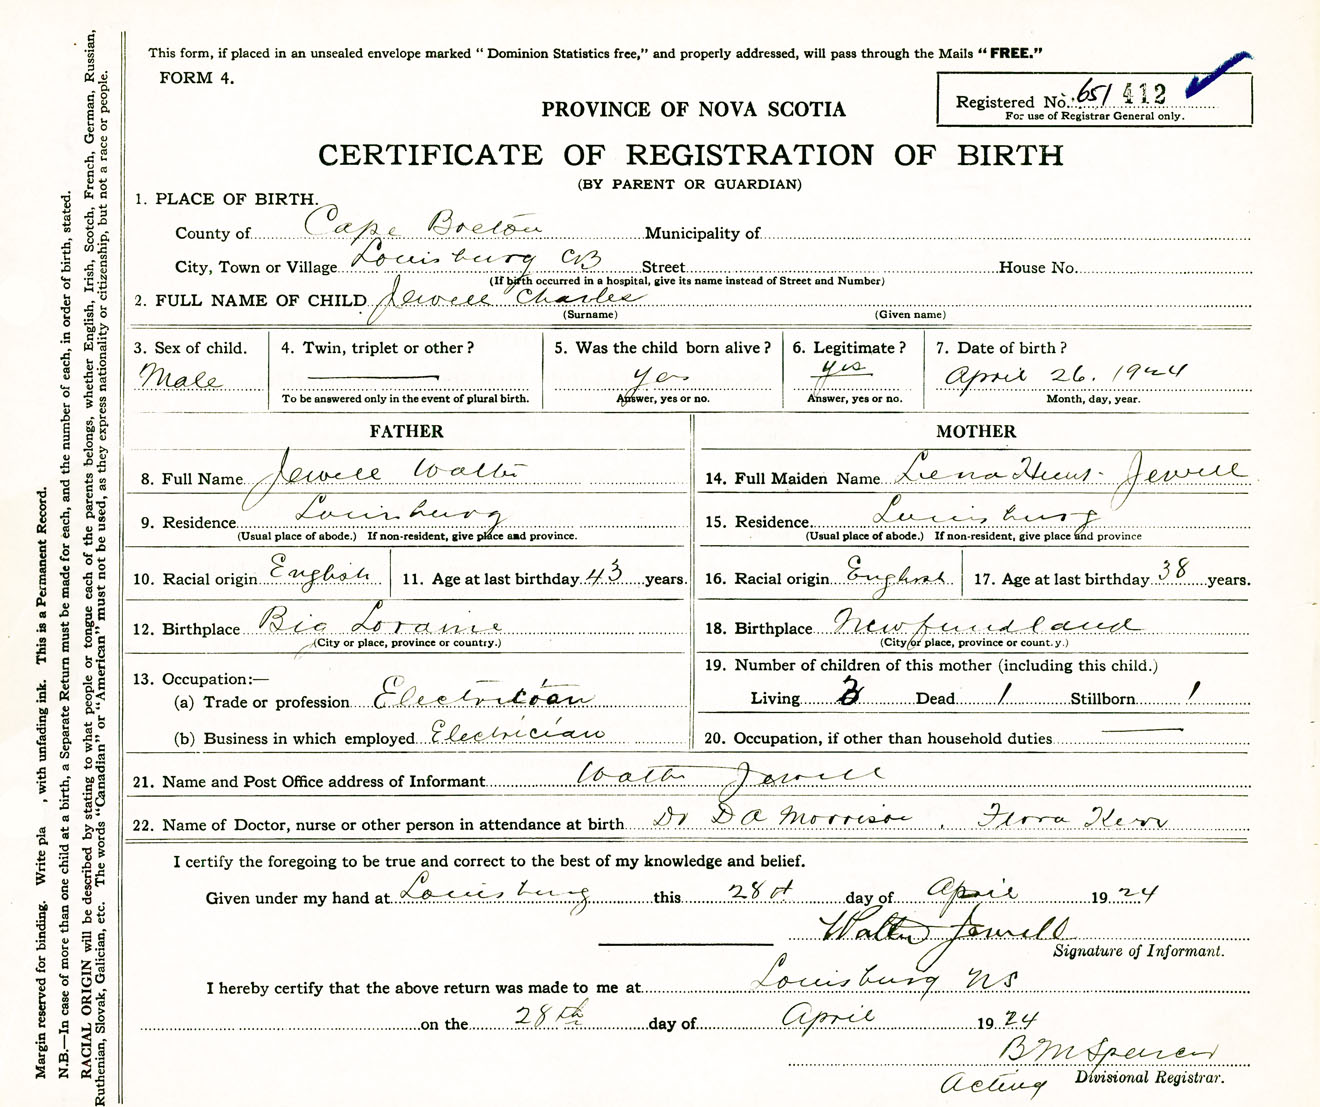 This form, if placed in an unsealed envelope marked " Dominion Statistics free," and properly addressed, will pass through the Mails " FREE."
FORM 4.
Registered No. 651 412
For use of Registrar General only.
PROVINCE OF NOVA SCOTIA
CERTIFICATE OF REGISTRATION OF BIRTH
(BY PARENT OR GUARDIAN)
1. PLACE OF BIRTH.
County of Cape Breton Municipality of
City, Town or Village Louisburg CB Street House No.
(If birth occurred in a hospital, give its name instead of Street and Number)
2. FULL NAME OF CHILD Jewell Charles
(Surname) (Given name)
3. Sex of child. 4. Twin, triplet or other? 5. Was the child born alive? 6. Legitimate? 7. Date of birth?
Male yes yes April 26. 1924
To be answered only in the event of plural birth. Answer, yes or no. Answer, yes or no. Month, day, year.
FATHER MOTHER
8. Full Name Jewell Walter 14. Full Maiden Name Lena Hunt Jewell
9. Residence Louisburg 15. Residence. Louisburg
(Usual place of abode.) If non-resident, give place and province. (Usual place of abode.) If non-resident, give place and province
10. Racial origin English 11. Age at last birthday 43 years. 16. Racial origin English 17. Age at last birthday 38 years.
12. Birthplace Big Loraine 18. Birthplace Newfundland
(City or place, province or country.) (City or place, province or count.y.)
13. Occupation:— 19. Number of children of this mother (including this child.)
(a) Trade or profession Electrician Living 3 Dead 1 Stillborn 1
(b) Business in which employed Electrician 20. Occupation, if other than household duties
21. Name and Post Office address of Informant Walter Jewell
22. Name of Doctor, nurse or other person in attendance at birth Dr D A Morrison , Flora Kerr
I certify the foregoing to be true and correct to the best of my knowledge and belief.
Given under my hand at Louisburg this 28th day of April 1924
Walter Jewell
Signature of Informant.
I hereby certify that the above return was made to me at Louisburg NS
on the 28th day of April 1924
B M Spencer
Acting Divisional Registrar.
Margin reserved for binding. Write pla , with unfading ink. This is a Permanent Record.
N.B.—In case of more than one child at a birth, a Separate Return must be made for each, and the number of each, in order of birth, stated.
RACIAL ORIGIN will be described by stating to what people or tongue each of the parents belongs, whether English, Irish, Scotch, French, German, Russian,
Ruthenian, Slovak, Galician, etc. The words "Canadian" or "American" must not be used, as they express nationality or citizenship, but not a race or people.